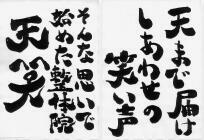 天まで届け
しあわせの
笑い声
そんな思いで
始めた整体院
天笑